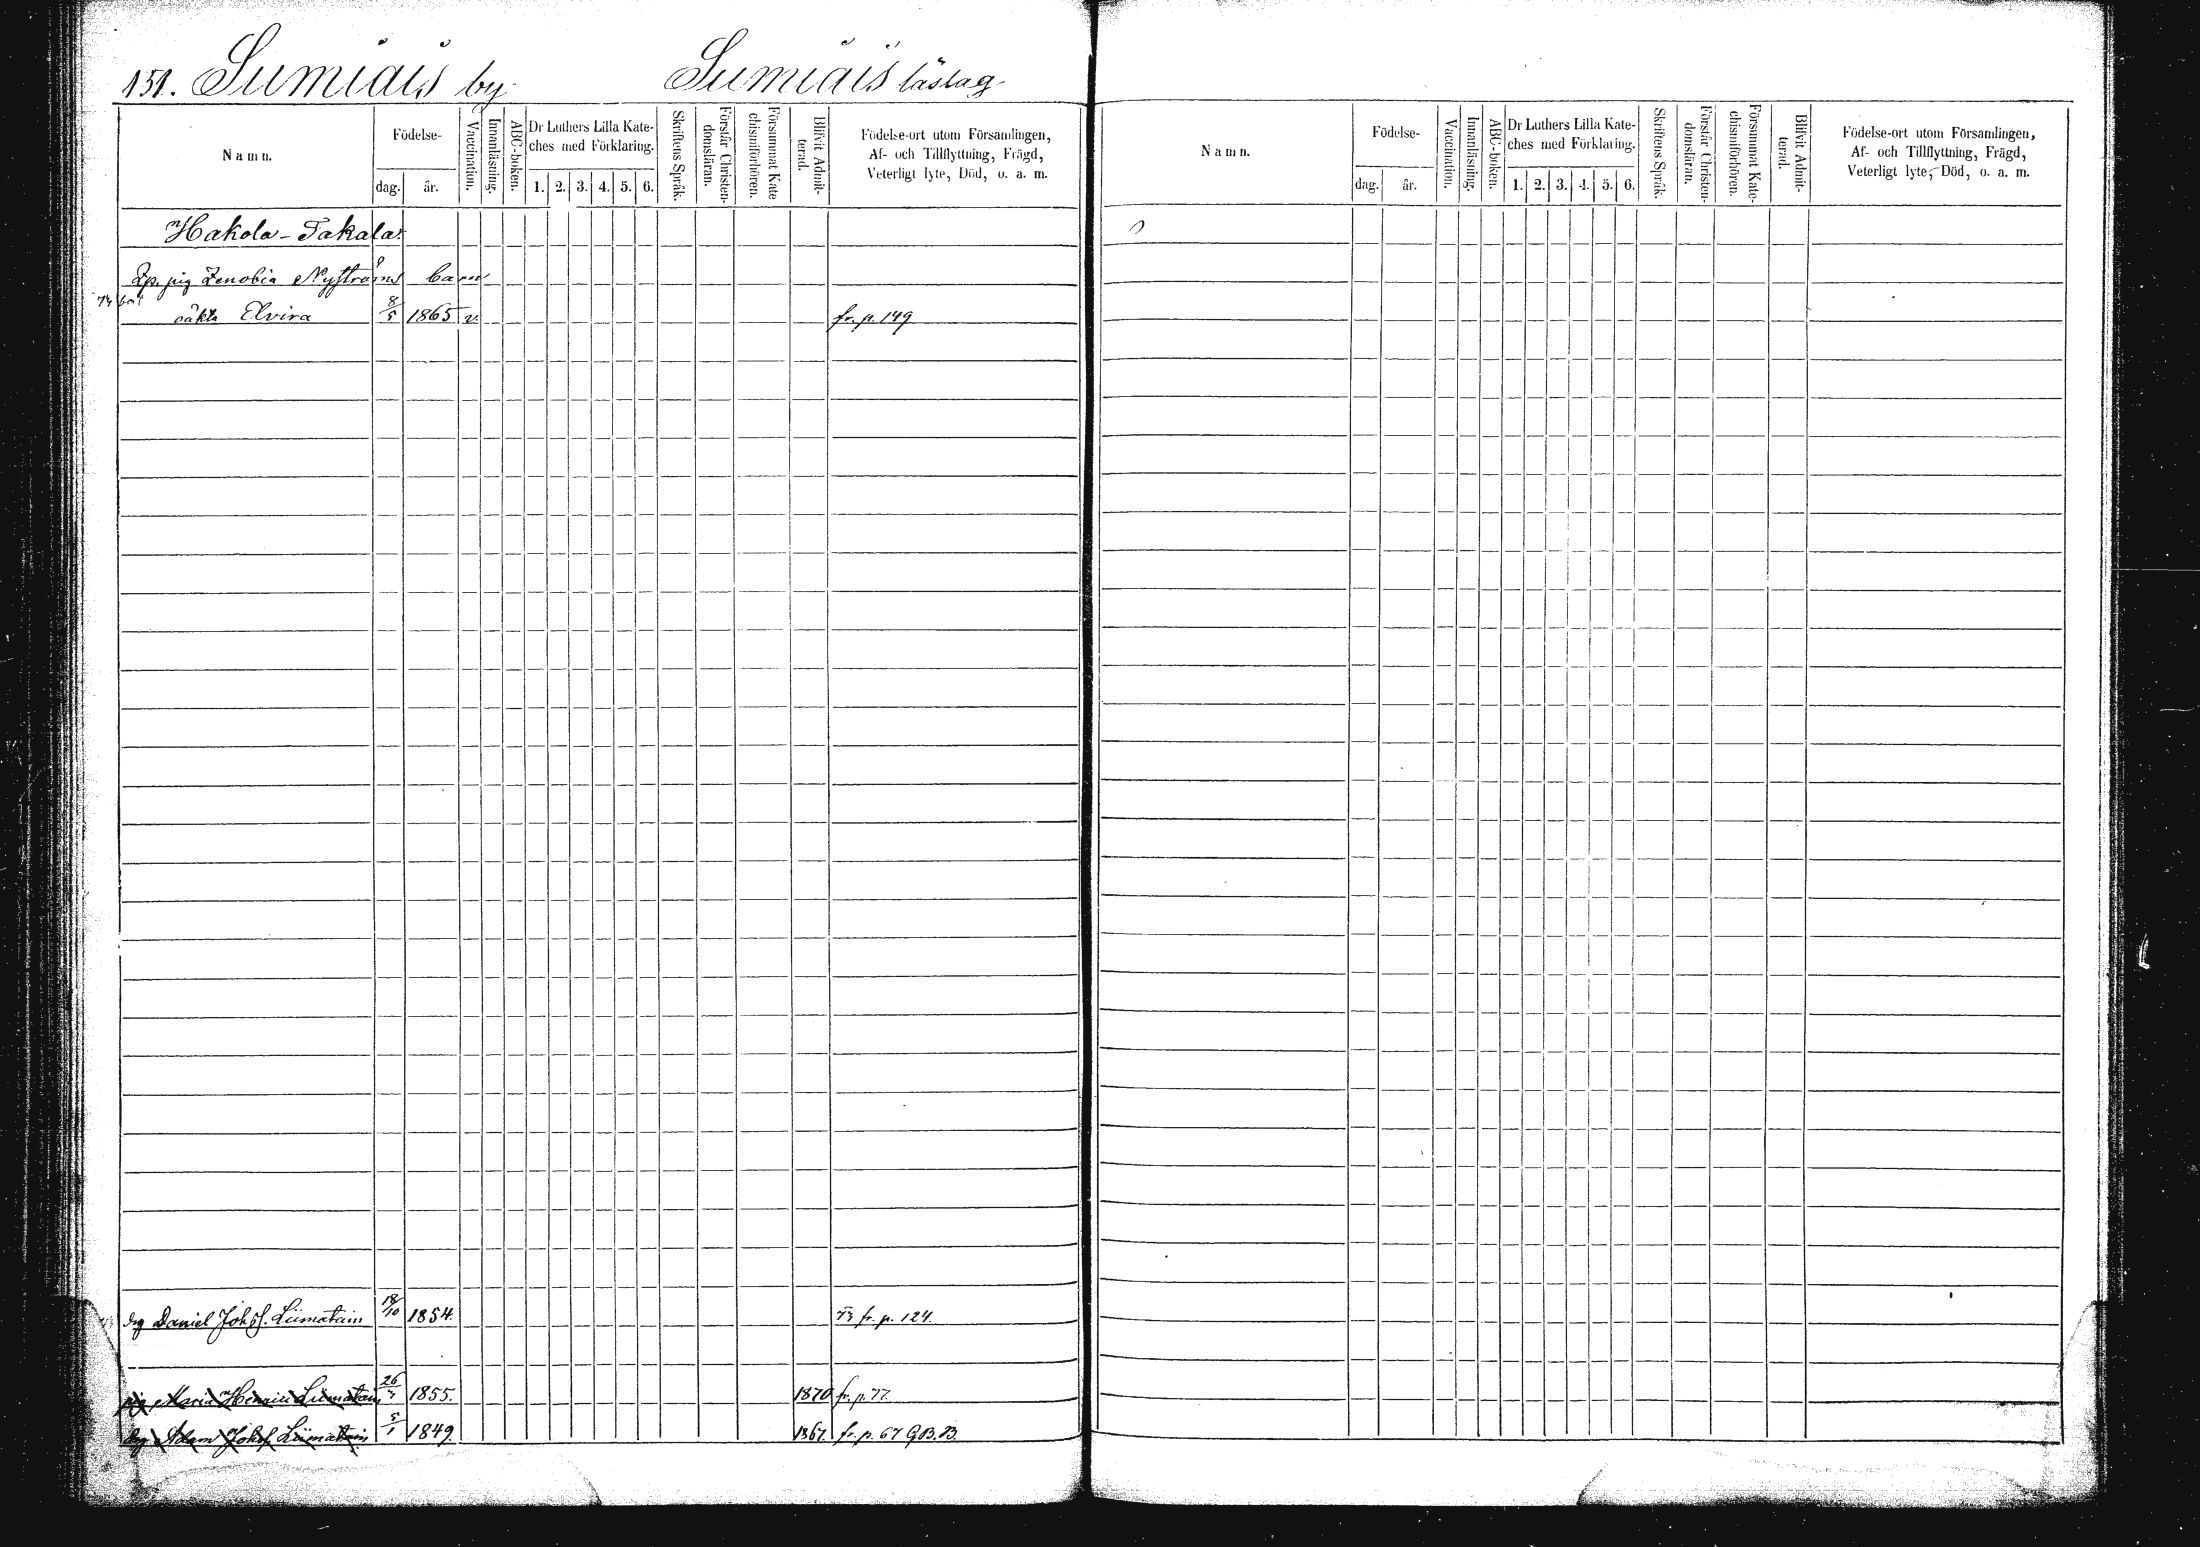 151. Sumiais by Sumiais läslag
Namn. Födelse- dag. år. Vaccination. Innanläsning. ABC-boken. Dr Luthers Lilla Kate- ches med Förklaring. 1. 2. 3. 4. 5. 6. Skriftens Språk. Förstår Christen- domsläran. Försummat Kate chismiförhören. Blifvit Admit- terad. Födelse-ort utom Församlingen, Af- och Tillflyttning, Frägd, Veterligt lyte, Död, o. a. m.
Hakola-Takala.
pig Zenobia Nyströms barn
oäkta Elvira 8/5 1865 v. fr. p. 149
drg Daniel Johsf. Liimatain 18/10 1854. fr. p. 124.
pig Maria Henrici Liimatain 1855. 1870 fr. p. 77.
drg Adam Johsf. Liimatain 5/1 1849. 1867. fr. p. 67
Namn. Födelse- dag. år. Vaccination. Innanläsning. ABC-boken. Dr Luthers Lilla Kate- ches med Förklaring. 1. 2. 3. 4. 5. 6. Skriftens Språk. Förstår Christen- domsläran. Försummat Kate- chismiförhören. Blifvit Admit- terad. Födelse-ort utom Församlingen, Af- och Tillflyttning, Frägd, Veterligt lyte, Död, o. a. m.